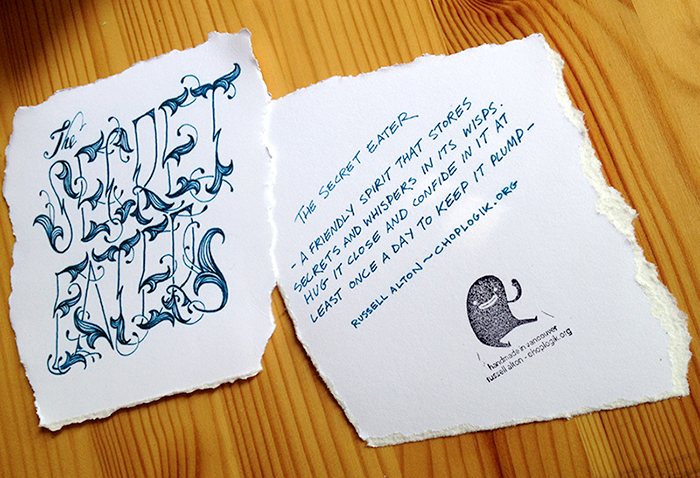 The
SECRET
EATERS
THE SECRET EATER
- A FRIENDLY SPIRIT THAT STORES
SECRETS AND WHISPERS IN ITS WISPS.
HUG IT CLOSE AND CONFIDE IN IT AT
LEAST ONCE A DAY TO KEEP IT PLUMP -
RUSSELL ALTON ~ CHOPLOGIK.ORG
handmade in vancouver
russell alton - choplogik.org